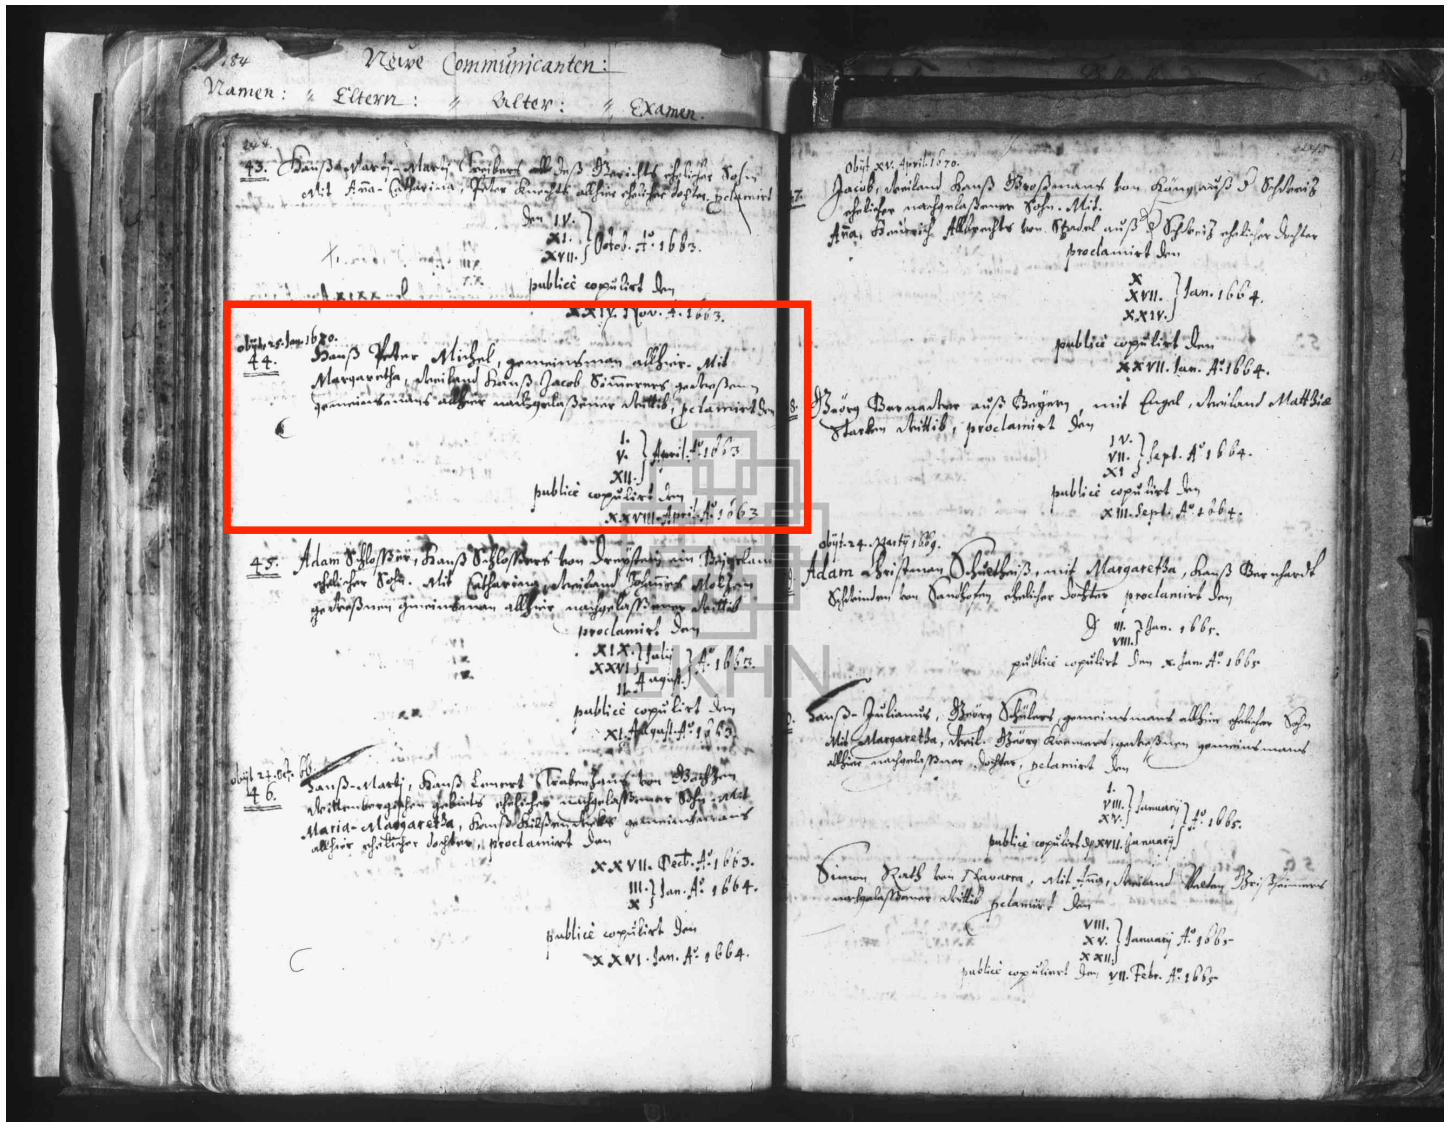 184
Neüe Communicanten:
Namen: " Eltern: " Alter: " Examen.
244.
43. Hanß-Martj, Martj Treibers all deß Gerichts ehelicher Sohn
Mit Anna-Catharina, Peter Knechts allhier ehelicher dochter, pclamirt
den IV.
XI.
XVII. Octob. Aº. 1663.
publicè copulirt den
XXIV. Nov. A. 1663.
obijt. 25. Jan. 1670.
44. Hanß Peter Michel, gemeinsman allhier. Mit
Margaretha, weiland Hanß Jacob Simerers geweßenen
gemeinsmans allhier nachgelaßener Wittib, pclamirt den
1.
V.
XII. April. Aº. 1663
publicè copulirt den
XXVIII. April. Aº. 1663
45. Adam Schloßer, Hanß Schloßers von
ehelicher Sohn. Mit Catharina, weiland Johannes
geweßnen gmeinsman allhier nachgelaßener Wittib
proclamirt den
XIX.
XXVI. Julij
II. August. Aº. 1663.
publicè copulirt den
XI. August. Aº. 1663.
obijt 24. Oct. 66.
46. Hanß-Martj, Hanß Lenert von
Wittenbergischen gebiets ehelicher nachgelaßener Sohn. Mit
Maria-Margaretha, Hanß gemeinsmans
allhier ehelicher dochter, proclamirt den
XXVII. Dect. Aº. 1663.
III.
X Jan. Aº. 1664.
publicè copulirt den
XXVI. Jan. Aº. 1664.
245
obijt XV. April. 1670.
47. Jacob, weiland Hanß Großmans von auß d Schweiz
ehelicher nachgelaßener Sohn. Mit.
Aña, Heinrich Albrechts von Stadel auß d Schweiz ehelicher dochter
proclamirt den
X
XVII.
XXIV. Jan. 1664.
publicè copulirt den
XXVII. Jan. Aº. 1664.
8. Geörg auß Beyern, mit Engel, weiland Matthiæ
Starken Wittib, proclamirt den
IV.
VII.
XI Sept. Aº. 1664.
publicè copulirt den
XIII. Sept. Aº. 1664.
obijt. 24. Martij 1669.
Adam Christman Schultheiß, mit Margaretha, Hanß Bernhardt
von Sandhofen ehelicher dochter proclamirt den
III.
VIII. Jan. 1665.
publicè copulirt den X. Jan. Aº. 1665
Hanß-Julianus, Geörg Schülers, gemeinsmans allhier ehelicher Sohn
Mit Margaretha, weil. Geörg Kremers, geweßnen gemeinsmans
allhier nachgelaßner dochter, pclamirt den
1.
VIII.
XV. January Aº. 1665.
publicè copulirt d XVII. January
Simon Rath von Navarra, Mit Aña, weiland Velten
nachgelaßener Wittib pclamirt den
VIII.
XV.
XXII. January Aº. 1665
publicè copulirt den VII. Febr. Aº. 1665
EKHN